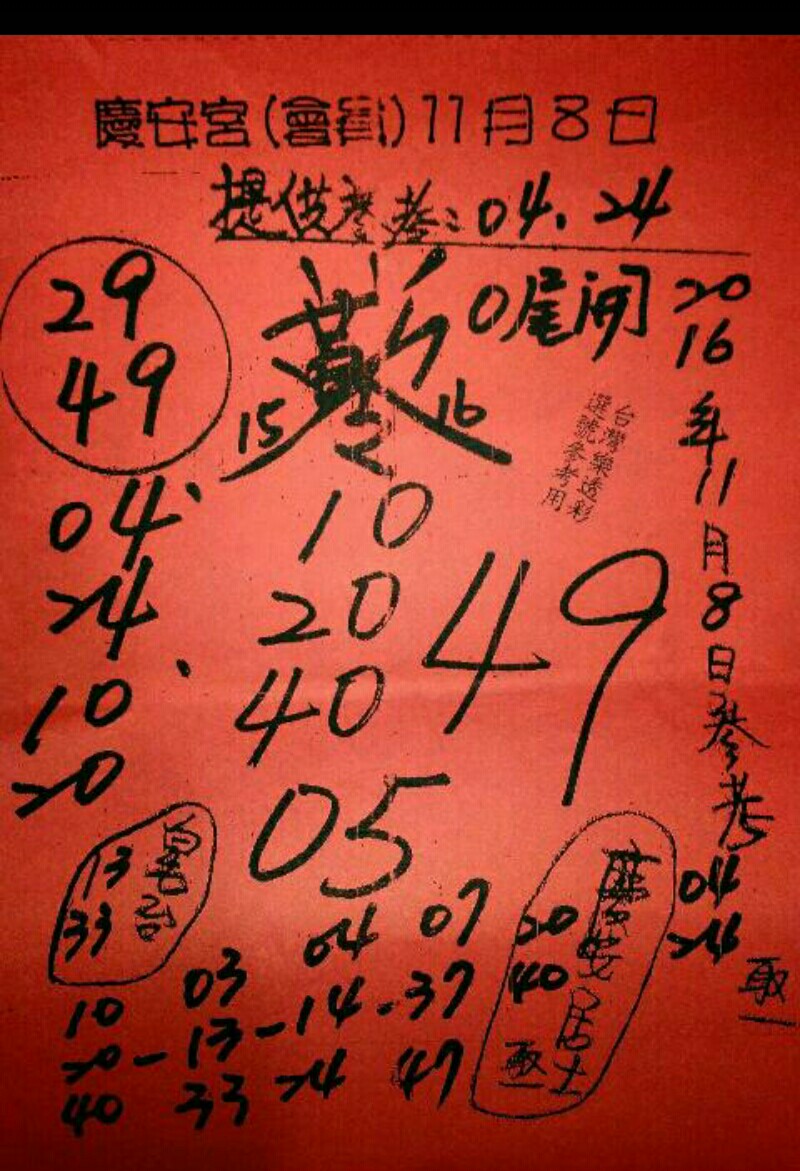 慶安宮(會衙)11月8日
提供參考:04.24
29
49
0尾開
15 16
台灣樂透彩
選號參考用
2016年11月8日參考
04
24
取一
04
24
10
20
10
20
40
49
05
13
33
慶安居士
20
40
取一
04 07
10 03
20-13-14-37
40 33 24 47